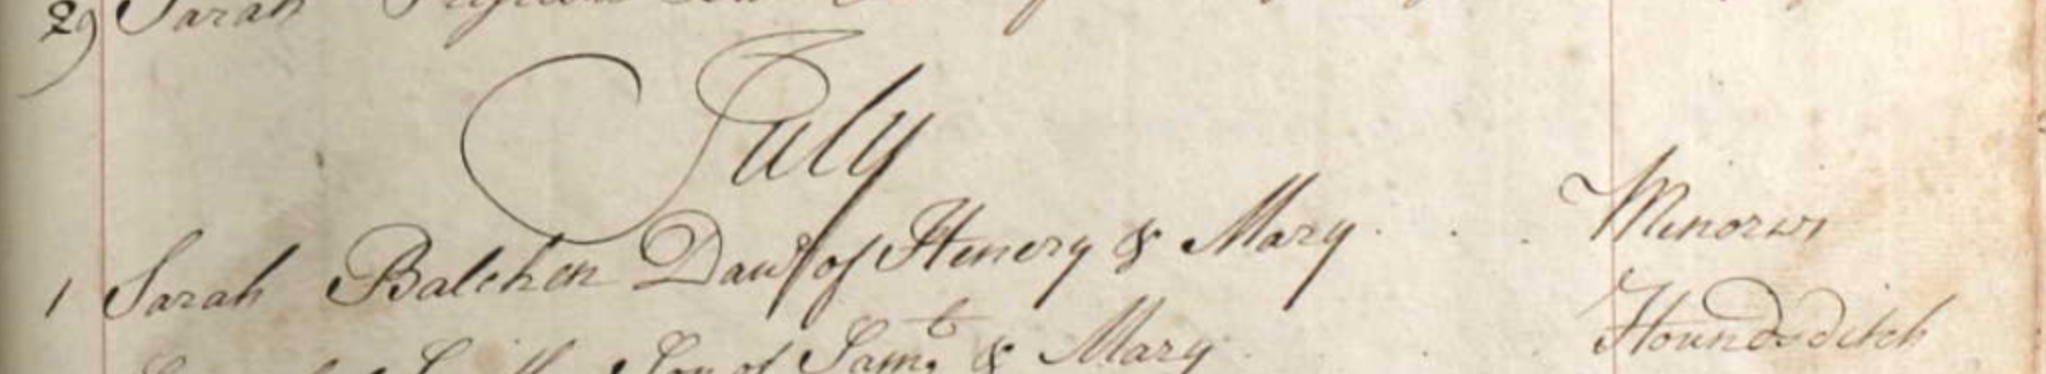 29 Sarah
July
1 Sarah Balchen Daur of Henery & Mary . . . Minorws
Son of Saml & Mary . . . Houndsditch